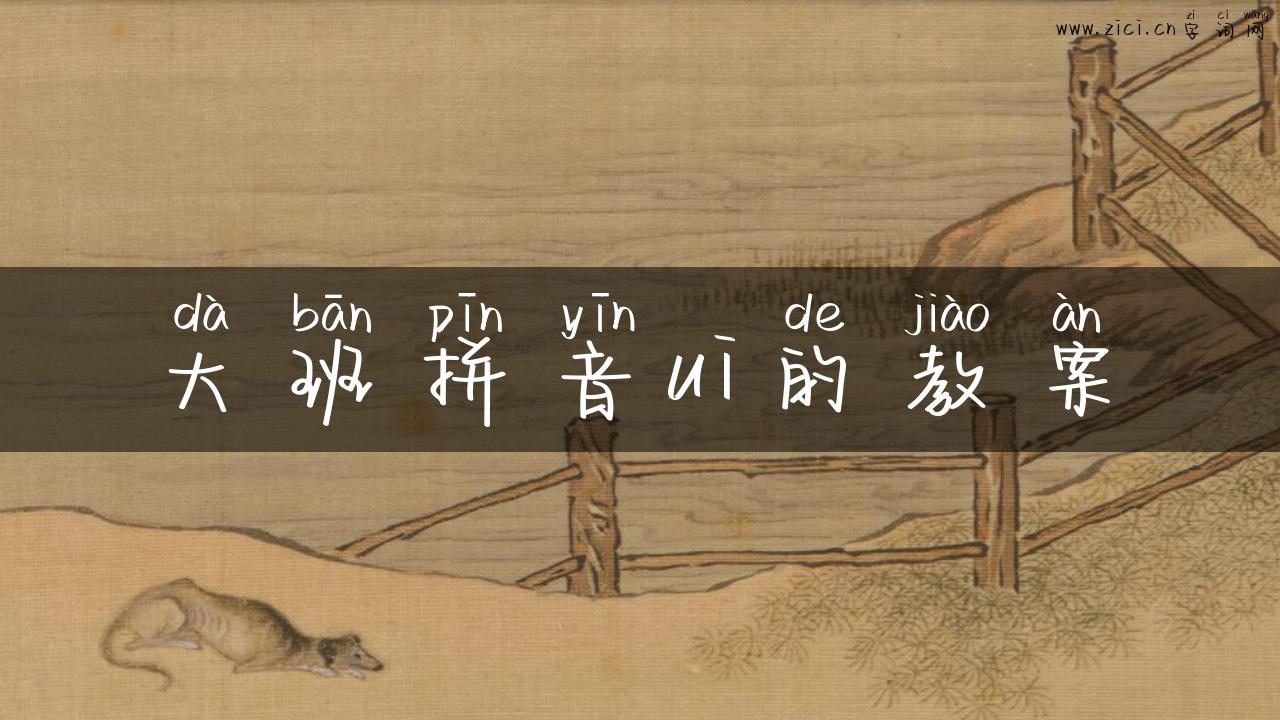 zi ci wang
www.zici.cn字词网
dà bān pīn yīn de jiào àn
大班拼音uī的教案